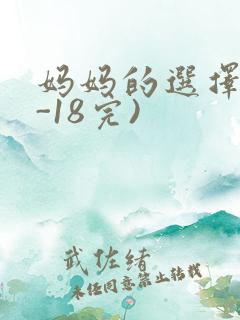 妈妈的選擇
-18完)
武佐绪
未经同意禁止转载